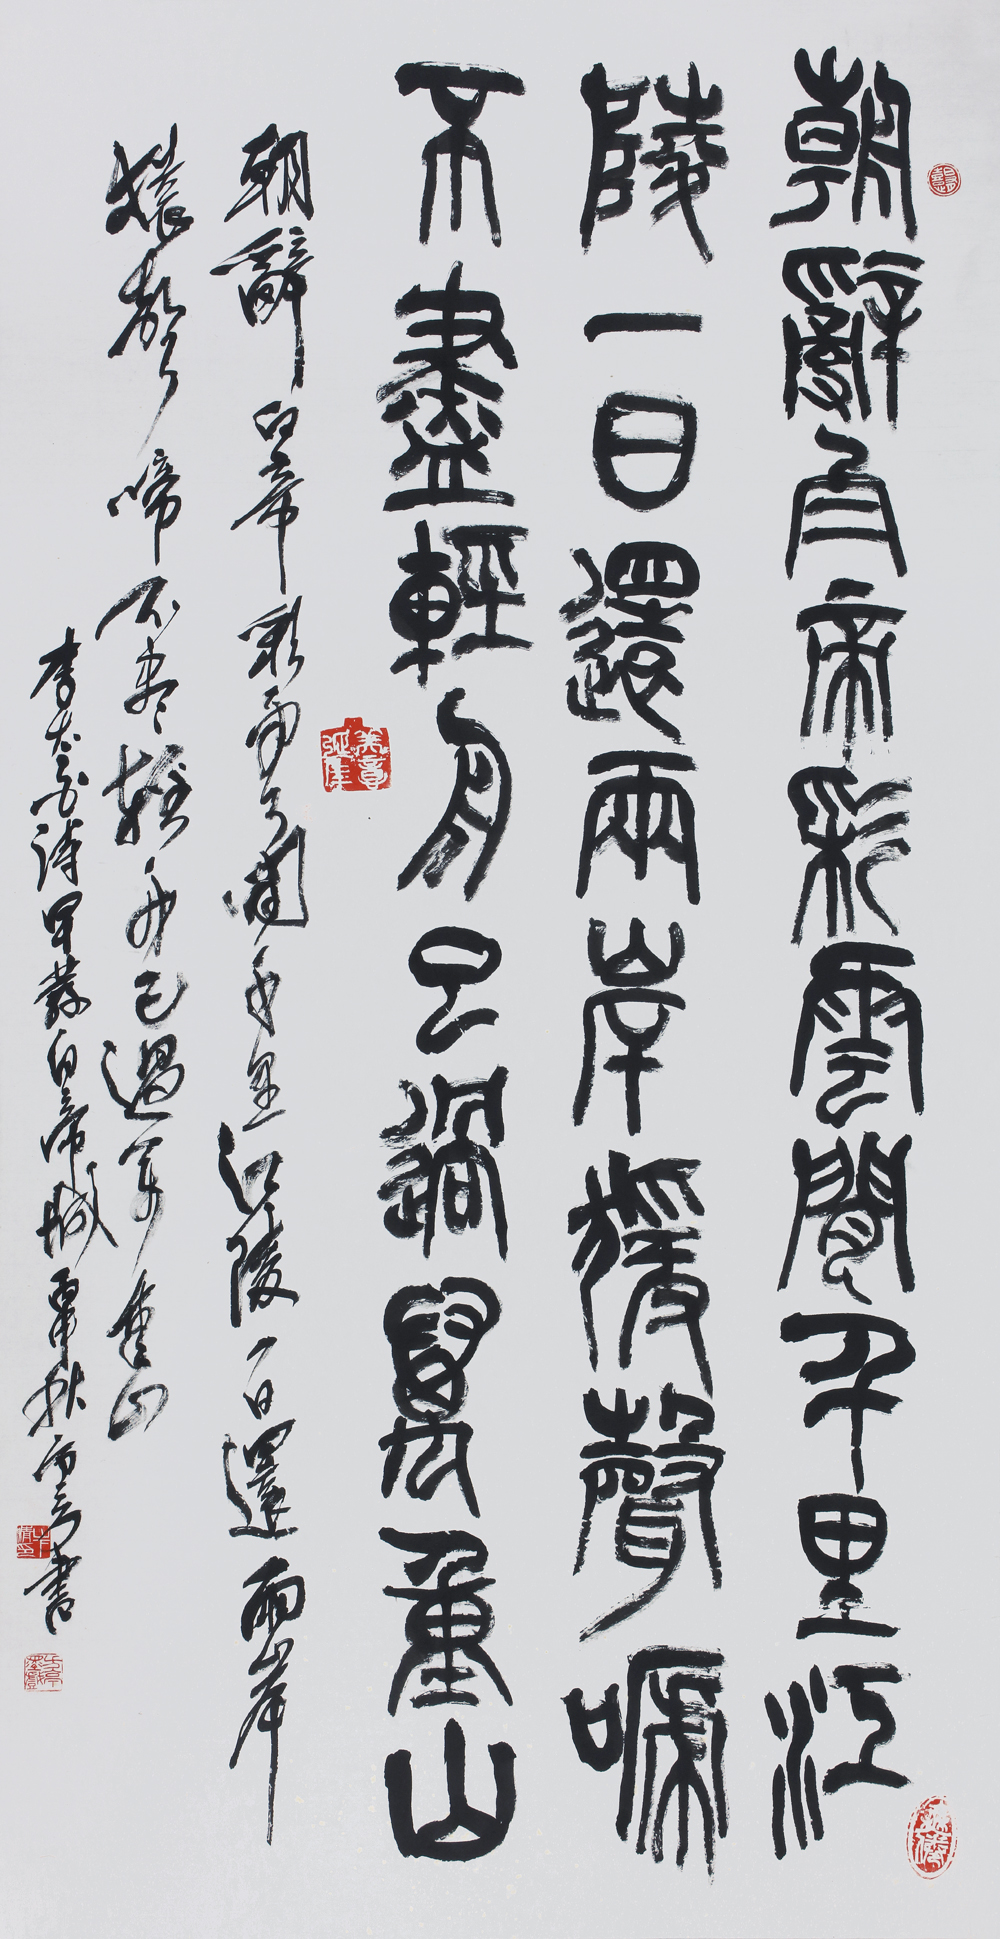 朝辭白帝彩雲間千里江
陵一日還兩岸猨聲嗁
不盡輕舟已過萬重山
朝辭白帝彩雲間千里江陵一日還兩岸
猿聲啼不盡輕舟已過萬重山
李太白詩早發白帝城丙申秋書